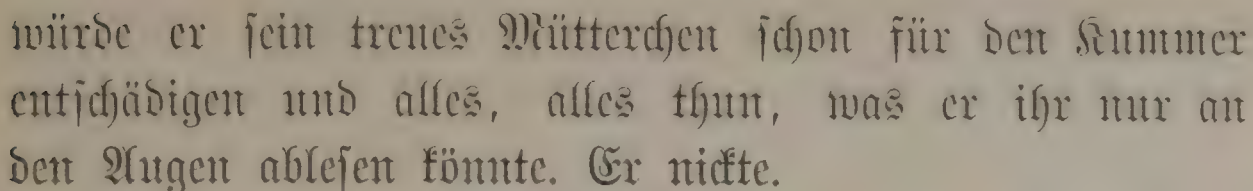 würde er ſein treues Mütterchen ſchon für den Kummer
entſchädigen und alles, alles thun, was er ihr nur an
den Augen ableſen könnte. Er nickte.